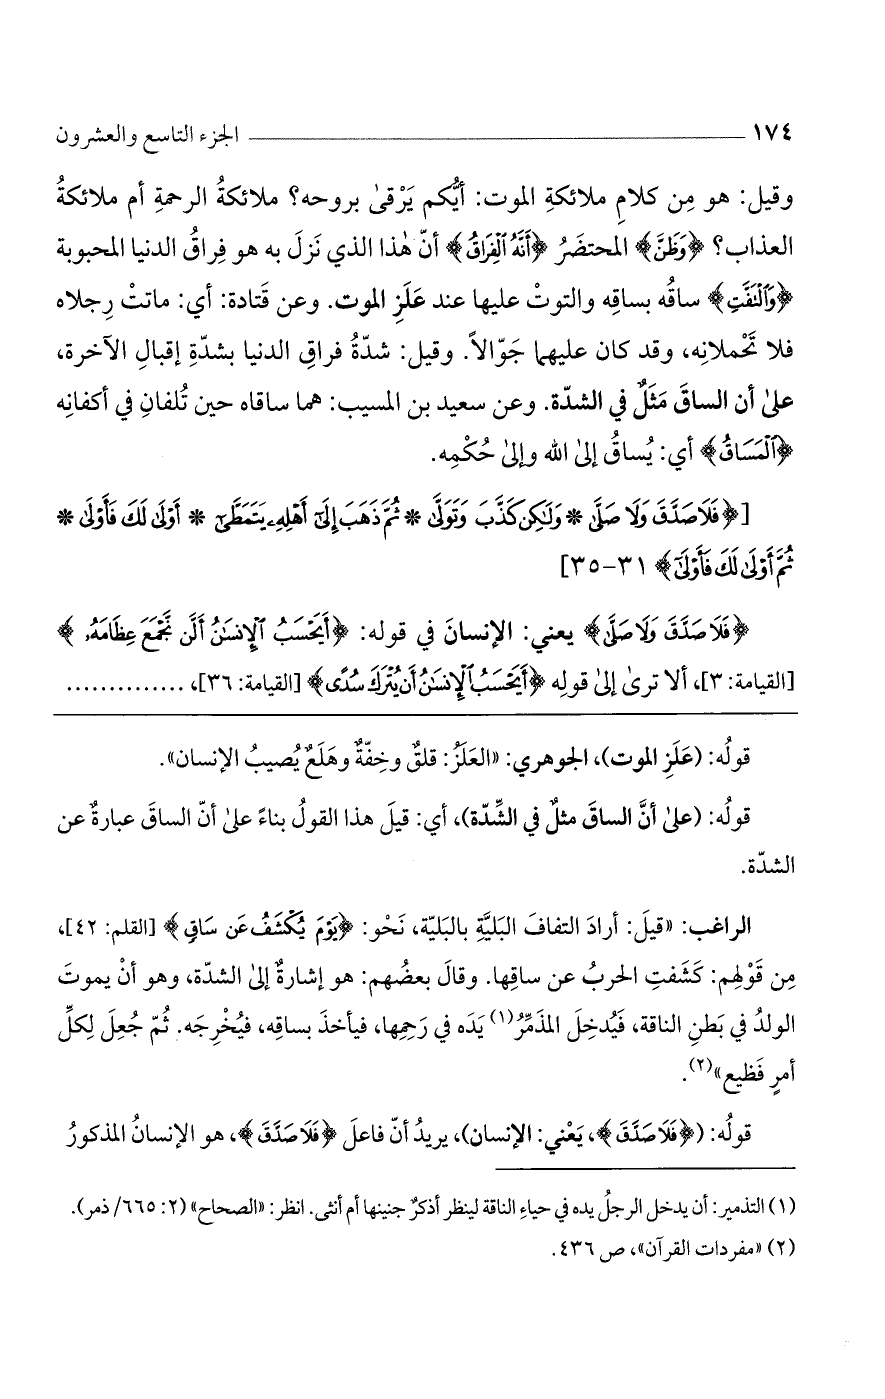 ١٧٤ ــــــــــــــــــــــــــــــــ الجزء التاسع والعشرون
وقيل: هو مِن كلامِ ملائكةِ الموت: أيُّكم يَرْقىٰ بروحه؟ ملائكةُ الرحمةِ أم ملائكةُ
العذاب؟ ﴿وَظَنَّ﴾ المحتضَرُ ﴿أَنَّهُ ٱلْفِرَاقُ﴾ أنّ هٰذا الذي نَزلَ به هو فِراقُ الدنيا المحبوبة
﴿وَٱلْتَفَّتِ﴾ ساقُه بساقِه والتوتْ عليها عند عَلَزِ الموت. وعن قَتادة: أي: ماتتْ رِجلاه
فلا تَحْملانِه، وقد كان عليهما جَوّالاً. وقيل: شدّةُ فراقِ الدنيا بشدّةِ إقبالِ الآخرة،
علىٰ أن الساقَ مَثَلٌ في الشدّة. وعن سعيد بن المسيب: هما ساقاه حين تُلفانِ في أكفانِه
﴿ٱلْمَسَاقُ﴾ أي: يُساقُ إلىٰ الله وإلىٰ حُكْمِه.
[﴿فَلَا صَدَّقَ وَلَا صَلَّىٰ * وَلَٰكِن كَذَّبَ وَتَوَلَّىٰ * ثُمَّ ذَهَبَ إِلَىٰٓ أَهْلِهِۦ يَتَمَطَّىٰٓ * أَوْلَىٰ لَكَ فَأَوْلَىٰ *
ثُمَّ أَوْلَىٰ لَكَ فَأَوْلَىٰٓ﴾ ٣١-٣٥]
﴿فَلَا صَدَّقَ وَلَا صَلَّىٰ﴾ يعني: الإنسانَ في قوله: ﴿أَيَحْسَبُ ٱلْإِنسَٰنُ أَلَّن نَّجْمَعَ عِظَامَهُۥ﴾
[القيامة: ٣]، ألا ترىٰ إلىٰ قولِه ﴿أَيَحْسَبُ ٱلْإِنسَٰنُ أَن يُتْرَكَ سُدًى﴾ [القيامة: ٣٦]، ..............
قولُه: (عَلَزِ الموت)، الجوهري: «العَلَزُ: قلقٌ وخِفّةٌ وهَلَعٌ يُصيبُ الإنسان».
قولُه: (علىٰ أنَّ الساقَ مثلٌ في الشِّدّة)، أي: قيلَ هذا القولُ بناءً علىٰ أنّ الساقَ عبارةٌ عن
الشدّة.
الراغب: «قيلَ: أرادَ التفافَ البَليَّةِ بالبَليّة، نَحْو: ﴿يَوْمَ يُكْشَفُ عَن سَاقٍ﴾ [القلم: ٤٢]،
مِن قَوْلِهم: كَشَفتِ الحربُ عن ساقِها. وقالَ بعضُهم: هو إشارةٌ إلىٰ الشدّة، وهو أنْ يموتَ
الولدُ في بَطنِ الناقة، فَيُدخِلَ المذَمِّرُ(١) يَدَه في رَحِمِها، فيأخذَ بساقِه، فيُخْرِجَه. ثُمّ جُعِلَ لِكلِّ
أمرٍ فَظيع»(٢).
قولُه: (﴿فَلَا صَدَّقَ﴾، يَعْني: الإنسان)، يريدُ أنّ فاعلَ ﴿فَلَا صَدَّقَ﴾، هو الإنسانُ المذكورُ
(١) التذمير: أن يدخل الرجلُ يده في حياءِ الناقة لينظر أذكرٌ جنينها أم أنثى. انظر: «الصحاح» (٢: ٦٦٥/ ذمر).
(٢) «مفردات القرآن»، ص ٤٣٦.